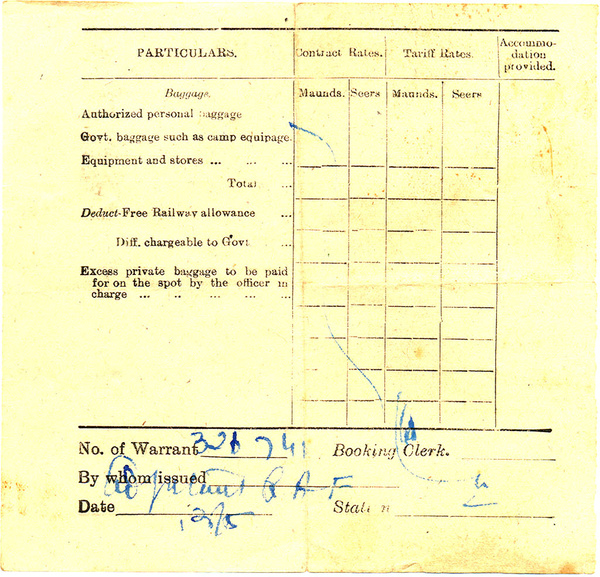 PARTICULARS. Contract Rates. Tariff Rates. Accommo-
dation
provided.
Baggage. Maunds. Seers Maunds. Seers
Authorized personal baggage
Govt. baggage such as camp equipage.
Equipment and stores ... ... ...
Total ...
Deduct-Free Railway allowance ...
Diff. chargeable to Govt. ...
Excess private baggage to be paid
for on the spot by the officer in
charge ... .. ... ... ...
No. of Warrant Booking Clerk.
By whom issued Adjutant R A F
Date Station